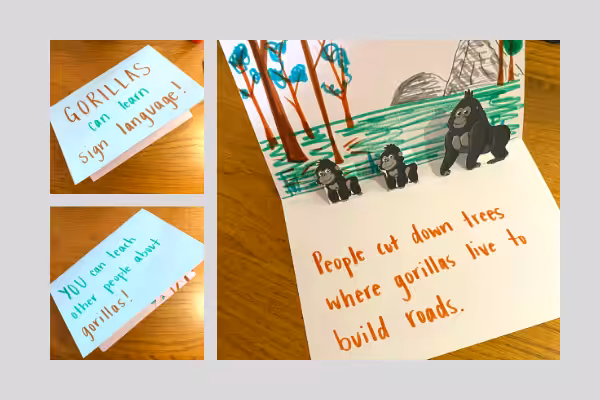 GORILLAS
can learn
sign language!
YOU can teach
other people about
gorillas!
People cut down trees
where gorillas live to
build roads.